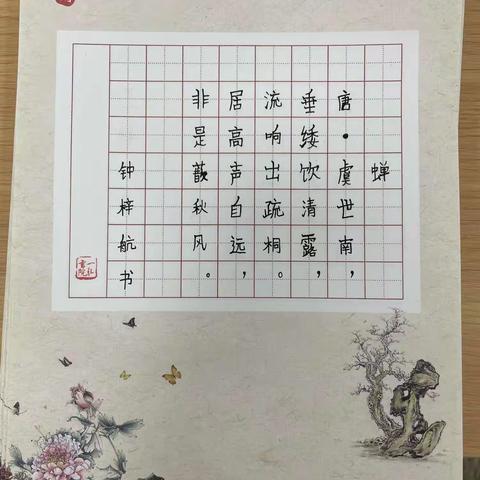 蝉
唐·虞世南，
垂緌饮清露，
流响出疏桐。
居高声自远，
非是秋风。
钟梓航书
一礼
書院